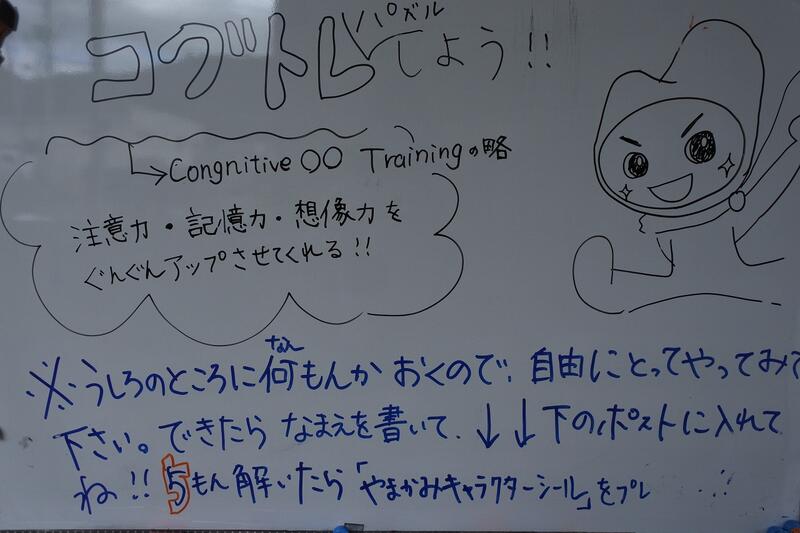 コグトレパズルしよう!!
→Congnitive ○○ Trainingの略
注意力・記憶力・想像力を
ぐんぐんアップさせてくれる!!
※うしろのところに何もんか おくので、自由にとってやってみて
なん
下さい。できたら なまえを書いて、↓↓下のポストに入れて
ね!! 5もん解いたら「やまかみキャラクターシール」をプレ